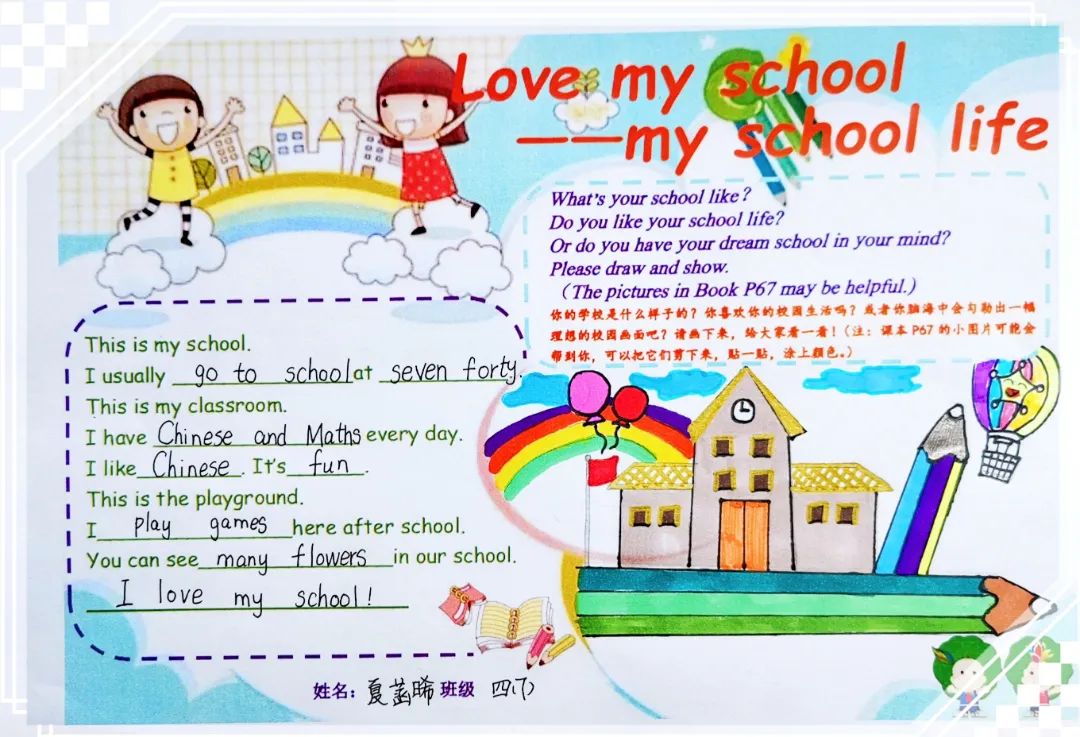 Love my school
——my school life
What's your school like?
Do you like your school life?
Or do you have your dream school in your mind?
Please draw and show.
（The pictures in Book P67 may be helpful.）
你的学校是什么样子的？你喜欢你的校园生活吗？或者你脑海中会勾勒出一幅
理想的校园画面吧？请画下来，给大家看一看！（注：课本P67的小图片可能会
帮到你，可以把它们剪下来，贴一贴，涂上颜色。）
This is my school.
I usually go to school at seven forty.
This is my classroom.
I have Chinese and Maths every day.
I like Chinese. It's fun.
This is the playground.
I play games here after school.
You can see many flowers in our school.
I love my school!
姓名：夏菡晞 班级 四(7)